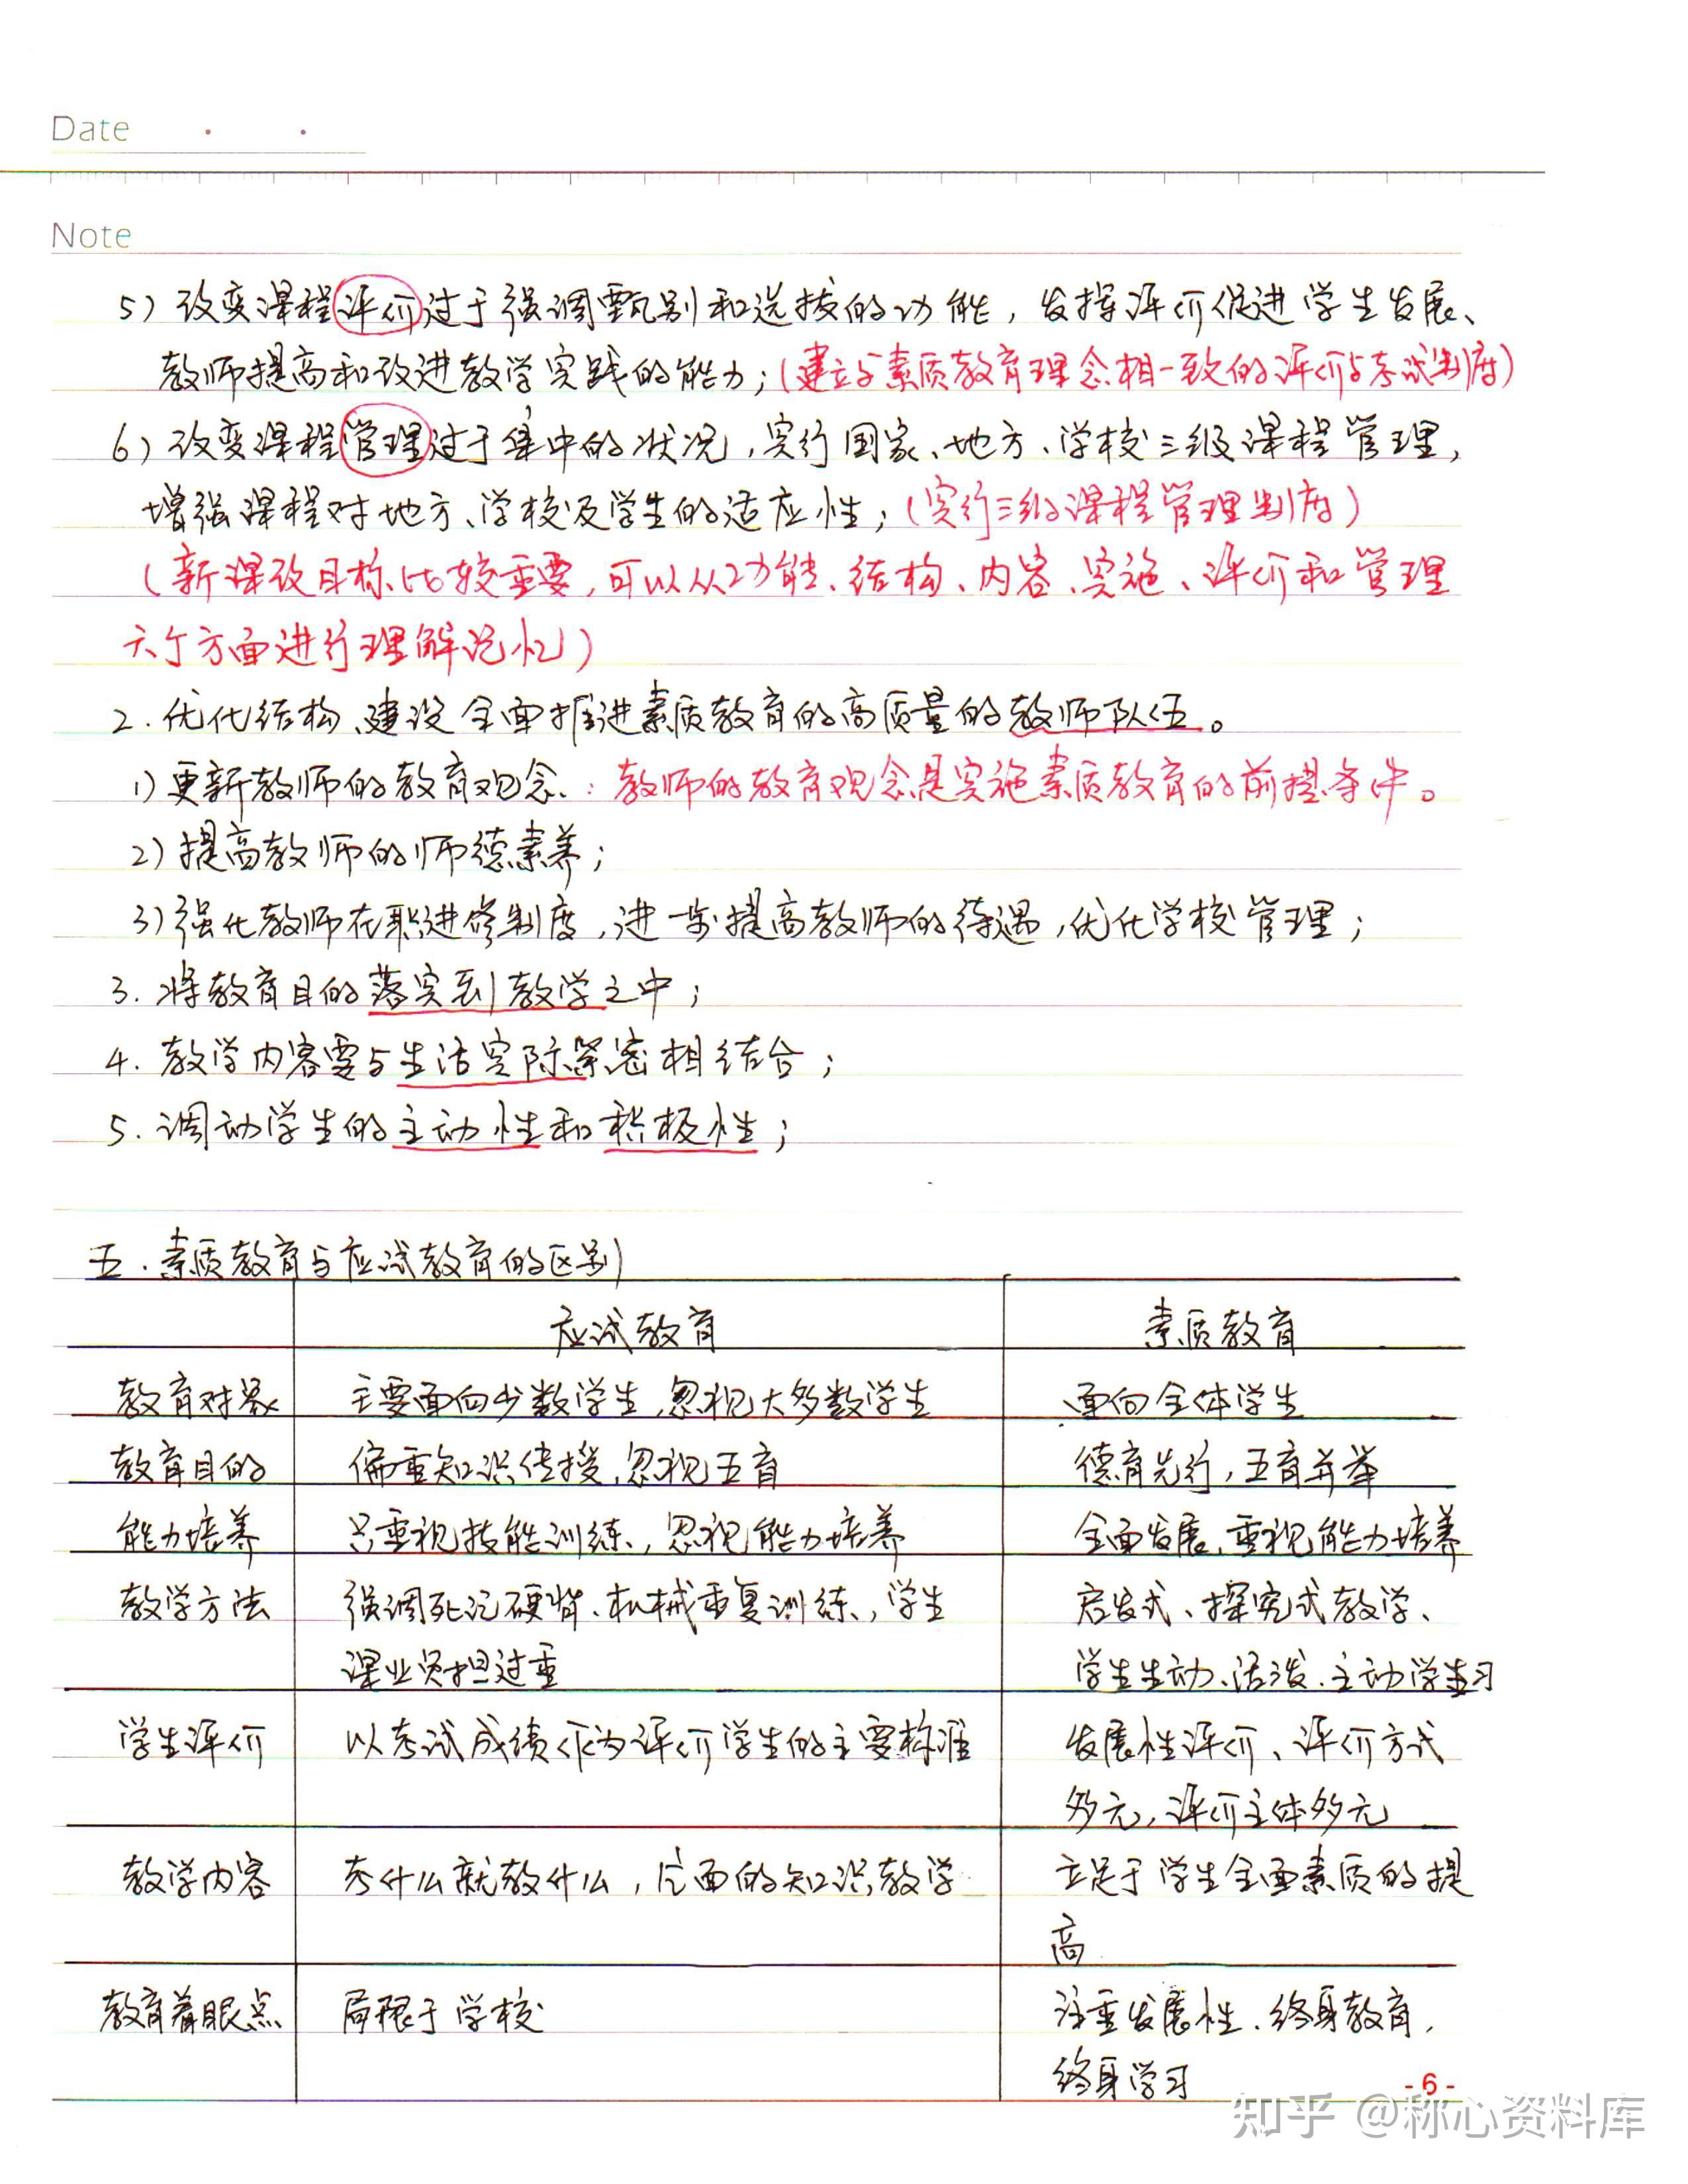 Date
Note
5) 改变课程评价过于强调甄别和选拔的功能，发挥评价促进学生发展、
教师提高和改进教学实践的能力；(建立与素质教育理念相一致的评价与考试制度)
6) 改变课程管理过于集中的状况，实行国家、地方、学校三级课程管理，
增强课程对地方、学校及学生的适应性；(实行三级课程管理制度)
(新课改目标比较重要，可以从功能、结构、内容、实施、评价和管理
六个方面进行理解记忆)
2. 优化结构、建设全面推进素质教育的高质量的教师队伍。
1) 更新教师的教育观念：教师的教育观念是实施素质教育的前提条件。
2) 提高教师的师德素养；
3) 强化教师在职进修制度，进一步提高教师的待遇，优化学校管理；
3. 将教育目的落实到教学之中；
4. 教学内容要与生活实际紧密相结合；
5. 调动学生的主动性和积极性；
五. 素质教育与应试教育的区别
应试教育 素质教育
教育对象 主要面向少数学生，忽视大多数学生 面向全体学生
教育目的 偏重知识传授，忽视五育 德育先行，五育并举
能力培养 只重视技能训练，忽视能力培养 全面发展，重视能力培养
教学方法 强调死记硬背、机械重复训练，学生 启发式、探究式教学、
课业负担过重 学生生动、活泼、主动学习
学生评价 以考试成绩作为评价学生的主要标准 发展性评价、评价方式
多元，评价主体多元
教学内容 考什么就教什么，片面的知识教学 立足于学生全面素质的提
高
教育着眼点 局限于学校 注重发展性、终身教育，
终身学习
-6-
知乎 @称心资料库